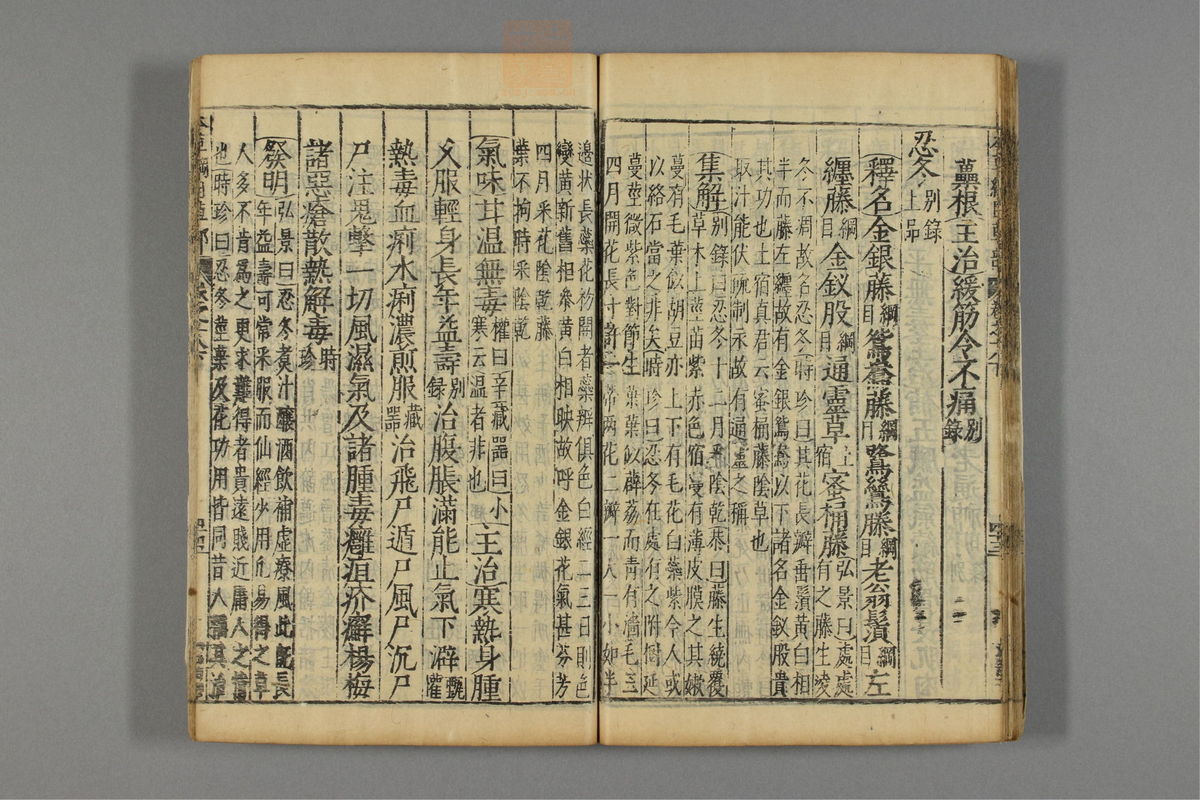 虆根主治緩筋令不痛别錄
忍冬别錄上品
釋名金銀藤綱目鴛鴦藤綱目鷺鷥藤綱目老翁鬚綱目左
纏藤綱目金釵股綱目通靈草土宿蜜桶藤弘景曰處處有之藤生凌
冬不凋故名忍冬時珍曰其花長瓣垂鬚黃白相
半而藤左纏故有金銀鴛鴦以下諸名金釵股貴
其功也土宿真君云蜜桶藤陰草也
取汁能伏硫制汞故有通靈之稱
集解别錄曰忍冬十二月采陰乾恭曰藤生繞覆
草木上莖苗紫赤色宿蔓有薄皮膜之其嫩
蔓有毛葉似胡豆亦上下有毛花白蘂紫今人或
以絡石當之非矣時珍曰忍冬在處有之附樹延
蔓莖微紫色對節生葉葉似薜荔而青有濇毛三
四月開花長寸許一蒂兩花二瓣一大一小如半
邊狀長蘂花初開者蘂瓣俱色白經二三日則色
變黃新舊相參黃白相映故呼金銀花氣甚芬芳
四月采花陰乾藤
葉不拘時采陰乾
氣味甘溫無毒權曰辛藏器曰小寒云溫者非也主治寒熱身腫
久服輕身長年益壽别錄治腹脹滿能止氣下澼甄權
熱毒血痢水痢濃煎服藏器治飛尸遁尸風尸沉尸
尸注鬼擊一切風濕氣及諸腫毒癰疽疥癬楊梅
諸惡瘡散熱解毒時珍
發明弘景曰忍冬煮汁釀酒飲補虛療風此既長
年益壽可常采服而仙經少用凡易得之草
人多不肯爲之更求難得者貴遠賤近庸人之情
也時珍曰忍冬莖葉及花功用皆同昔人稱其治